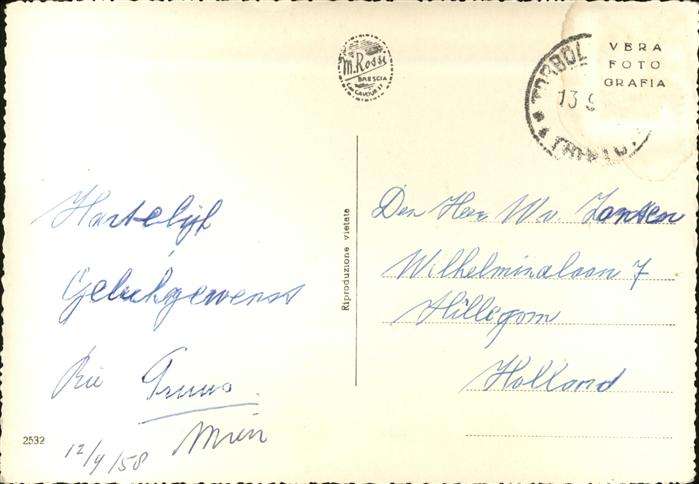 VERA
FOTO
GRAFIA
TORBOL
13 9
M. Rossi
BRESCIA
Riproduzione vietata
Hartelijk
Gelukgewenst
Rie Truus
Mien
12/9/58
2532
Den Heer W v Jansen
Wilhelminalaan 7
Hillegom
Holland